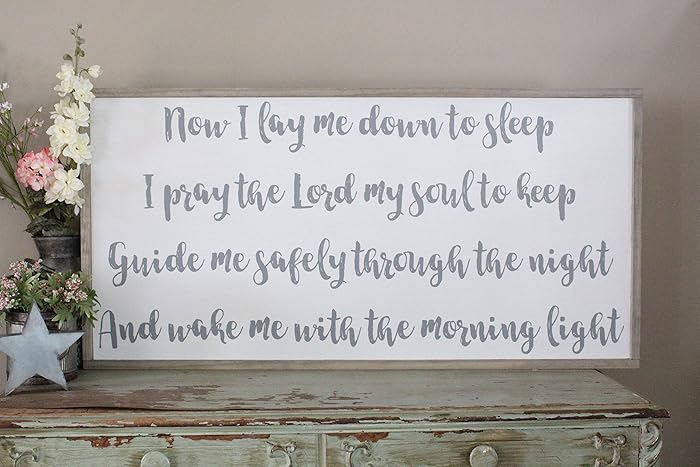 Now I lay me down to sleep
I pray the Lord my soul to keep
Guide me safely through the night
And wake me with the morning light